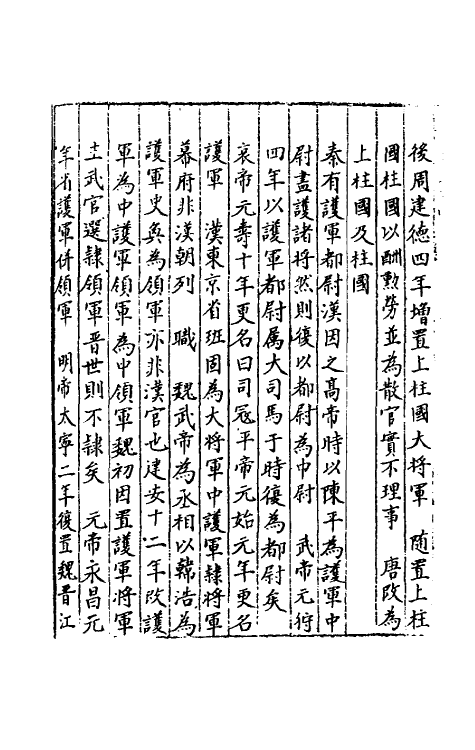 後周建德四年增置上柱國大將軍　隨置上柱
國柱國以酬勲勞並為散官實不理事　唐改為
上柱國及柱國
秦有護軍都尉漢因之髙帝時以陳平為護軍中
尉盡護諸將然則復以都尉為中尉　武帝元狩
四年以護軍都尉属大司馬于時復為都尉矣
哀帝元壽十年更名曰司冦平帝元始元年更名
護軍　漢東京省班固為大將軍中護軍隷將軍
幕府非漢朝列　職　魏武帝為丞相以韓浩為
護軍史奐為領軍亦非漢官也建安十二年改護
軍為中護軍領軍為中領軍魏初因置護軍將軍
主武官選隷領軍晋世則不隷矣　元帝永昌元
年省護軍併領軍　明帝太寧二年復置魏晋江